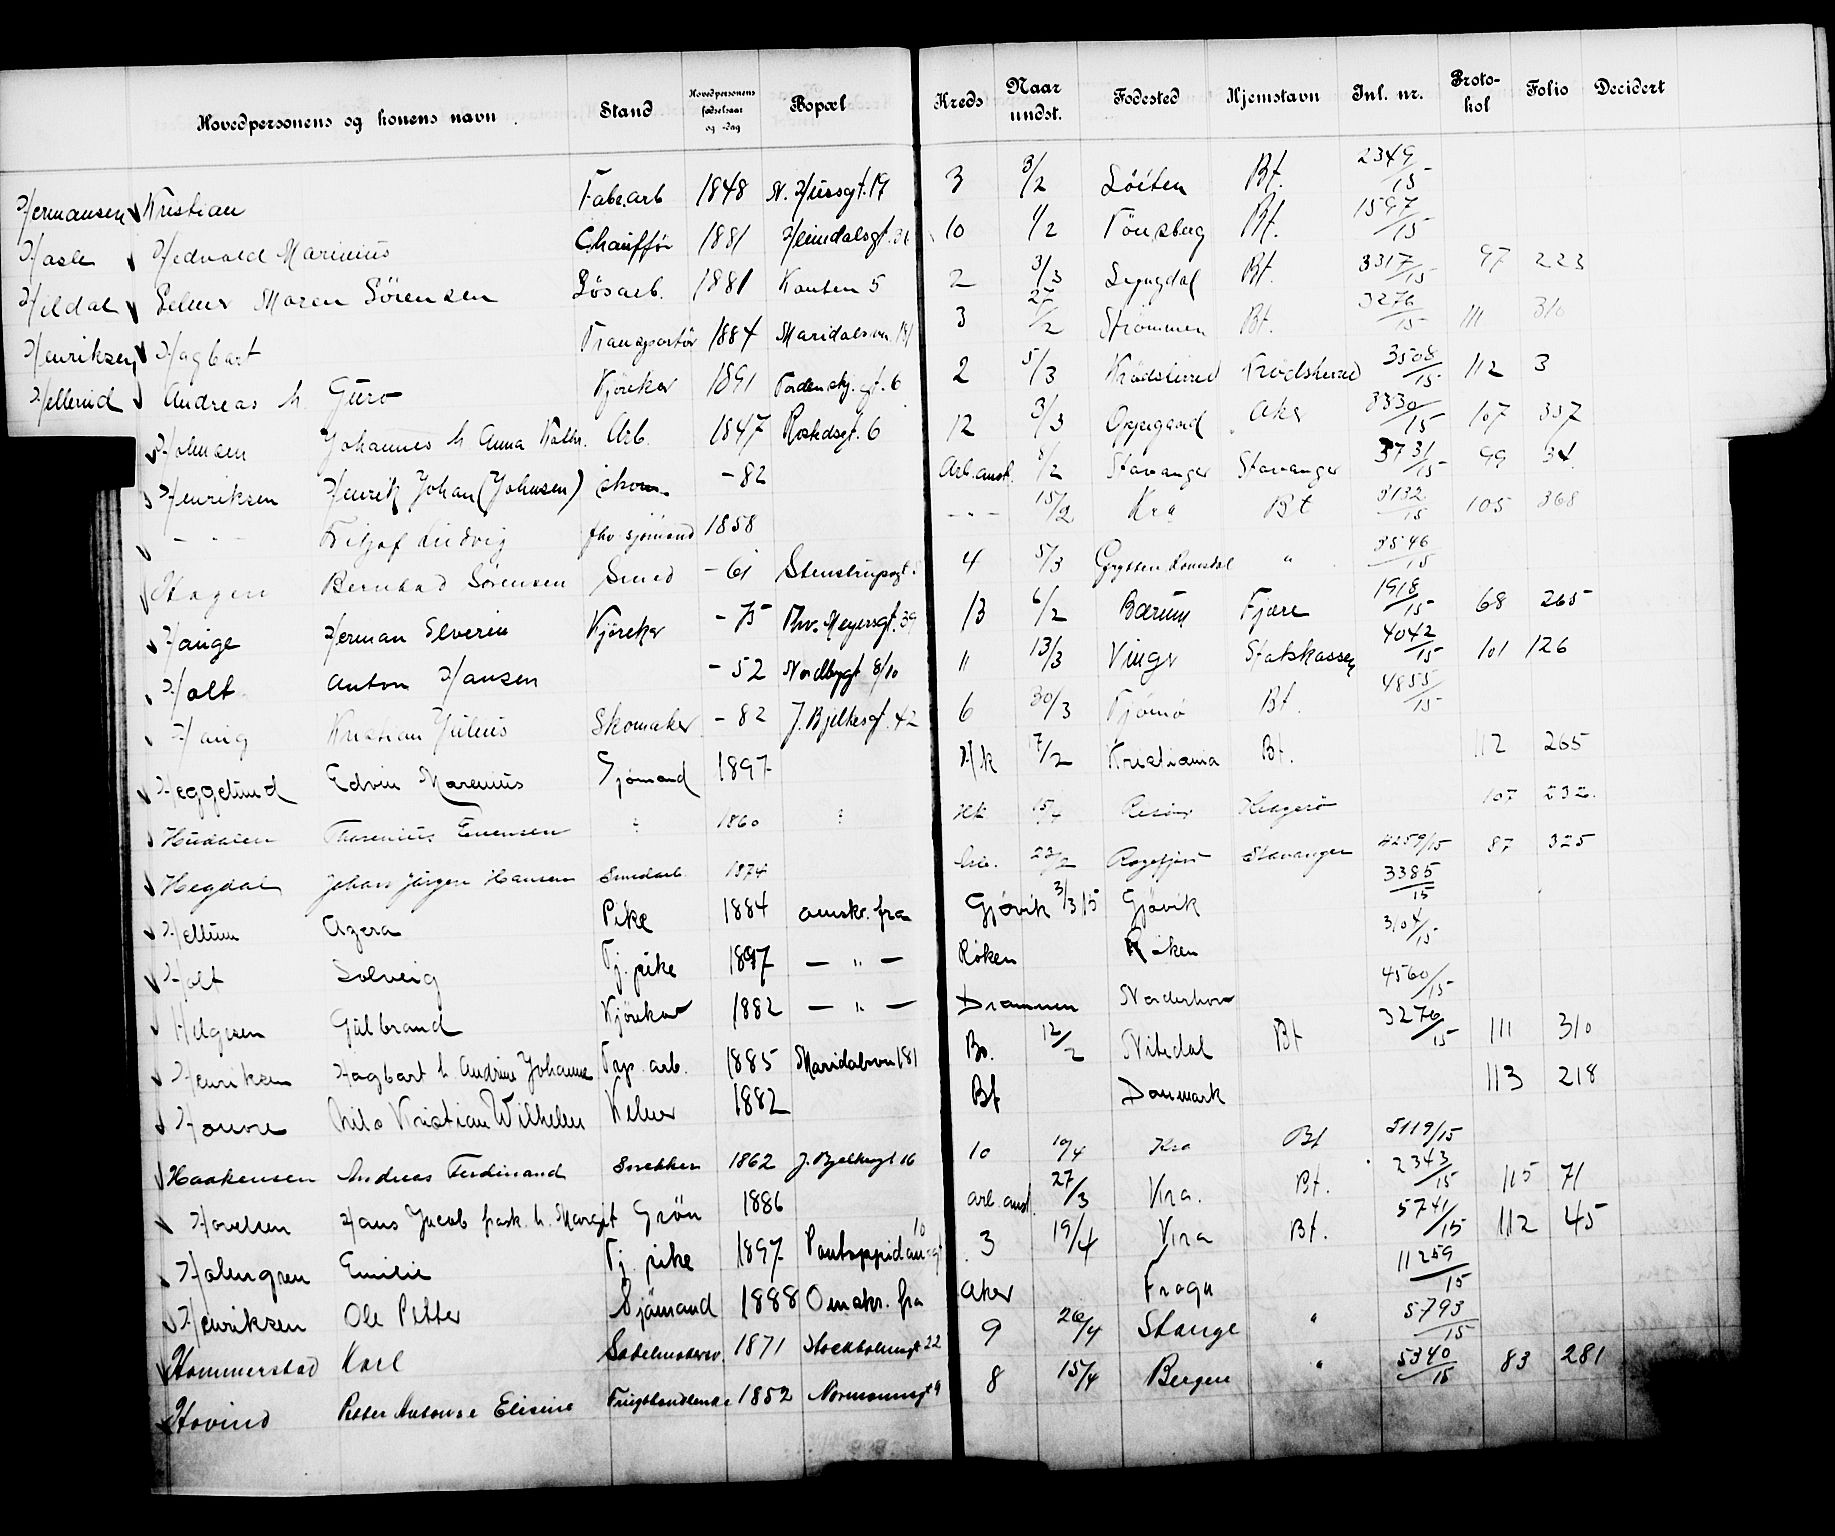 Hovedpersonens og konens navn Stand Hovedpersonens fødselsaar og -dag Bopæl Kreds Naar undst. Fødested Hjemstavn Inl. nr. Protokol Folio Decidert
Hermansen Kristian Fabr.arb 1848 N. Hussgt. 19 3 3/2 Löiten Bf. 2349/15
Hasle Hedvald Marinius Chauffør 1881 Heimdalsgt. 10 1/2 Tönsberg Bf. 1597/15
Hildal Maren Sörensen Løsarb. 1881 2 3/3 Lyngdal Bf. 3317/15 97 223
Henriksen Hagbart Transportør 1884 Maridalsvn. 181 3 27/2 Strømmen Bf. 3276/15 111 310
Hellerud Andreas h Guro Kjørekar 1891 Tordenskj. gt. 6 2 5/3 Krødsherred Krødsherred 3508/15 112 3
Holmsen Johannes h Anna Kathr. Arb. 1847 6 12 3/3 Oppegaard Aker 3330/15 107 337
Henriksen Henrik Johan (Johnsen) skom. - 82 Arb.anst. /2 Stavanger Stavanger 3731/15 99 34
- " - Ludvig fhv. sjømand 1858 - " - 15/2 Kra Bf 3132/15 105 368
Hagen Bernhard Sørensen Smed - 61 Stenstrupsgt. 4 5/3 Romsdal " 3546/15
Hauge Herman Severin Kjørekar - 75 Thv. Meyersgt. 39 13 6/2 Bærum Fjære 1918/15 68 265
Holt Anton Hansen - 52 Nordbygt 8/10 11 13/3 Vinger Statskassen 4042/15 101 126
Haug Kristian Julius Skomaker - 82 J. Bjelkesgt. 42 6 30/3 Tjømø Bf. 4855/15
Heggelund Edvin Marenius Sjömand 1897 Hk 17/2 Kristiania Bf. 112 265
Hudalen Thorenius Evensen 1860 Hk 15/ Risör 107 232
Hegdal Johan Jørgen Hansen Smedarb. 1874 23/2 Stavanger 4259/15 87 325
Hellum Azora Pike 1884 omskr. fra Gjøvik 3/3 15 Gjøvik 3385/15
Holt Solveig Tj. pike 1897 — " — Røken Røken 3104/15
Helgesen Gulbrand Kjørekar 1882 — " — Drammen Norderhov 4560/15
Henriksen Hagbart h Andrine Johanne Pap. arb. 1885 Maridalsvn 181 Bo. 12/2 Nitedal Bf 3276/15 111 310
Nils Kristian Wilhelm Kelner 1882 Bf Danmark 113 218
Haakensen Andreas Ferdinand Snekker 1862 J. Bjelkesgt 16 10 10/4 Kra Bf 5119/15
Hovelsen Hans Jacob frask. h. Margit Grön 1886 arb. anst. 27/3 Kra. Bf. 2343/15 115 71
Holmgren Emilie Tj. pike 1897 Pontoppidansgt 10 3 19/4 Kra Bf. 5741/15 112 45
Henriksen Ole Petter Sjömand 1888 Omskr. fra Aker Frogn 11259/15
Hommerstad Karl Sadelmakersv. 1871 Stockholmsgt 22 9 26/4 Stange " 5793/15
Hovind Petter Antonse Elisine Frugthandlende 1852 Normannsgt 9 8 15/4 Bergen " 5340/15 83 281